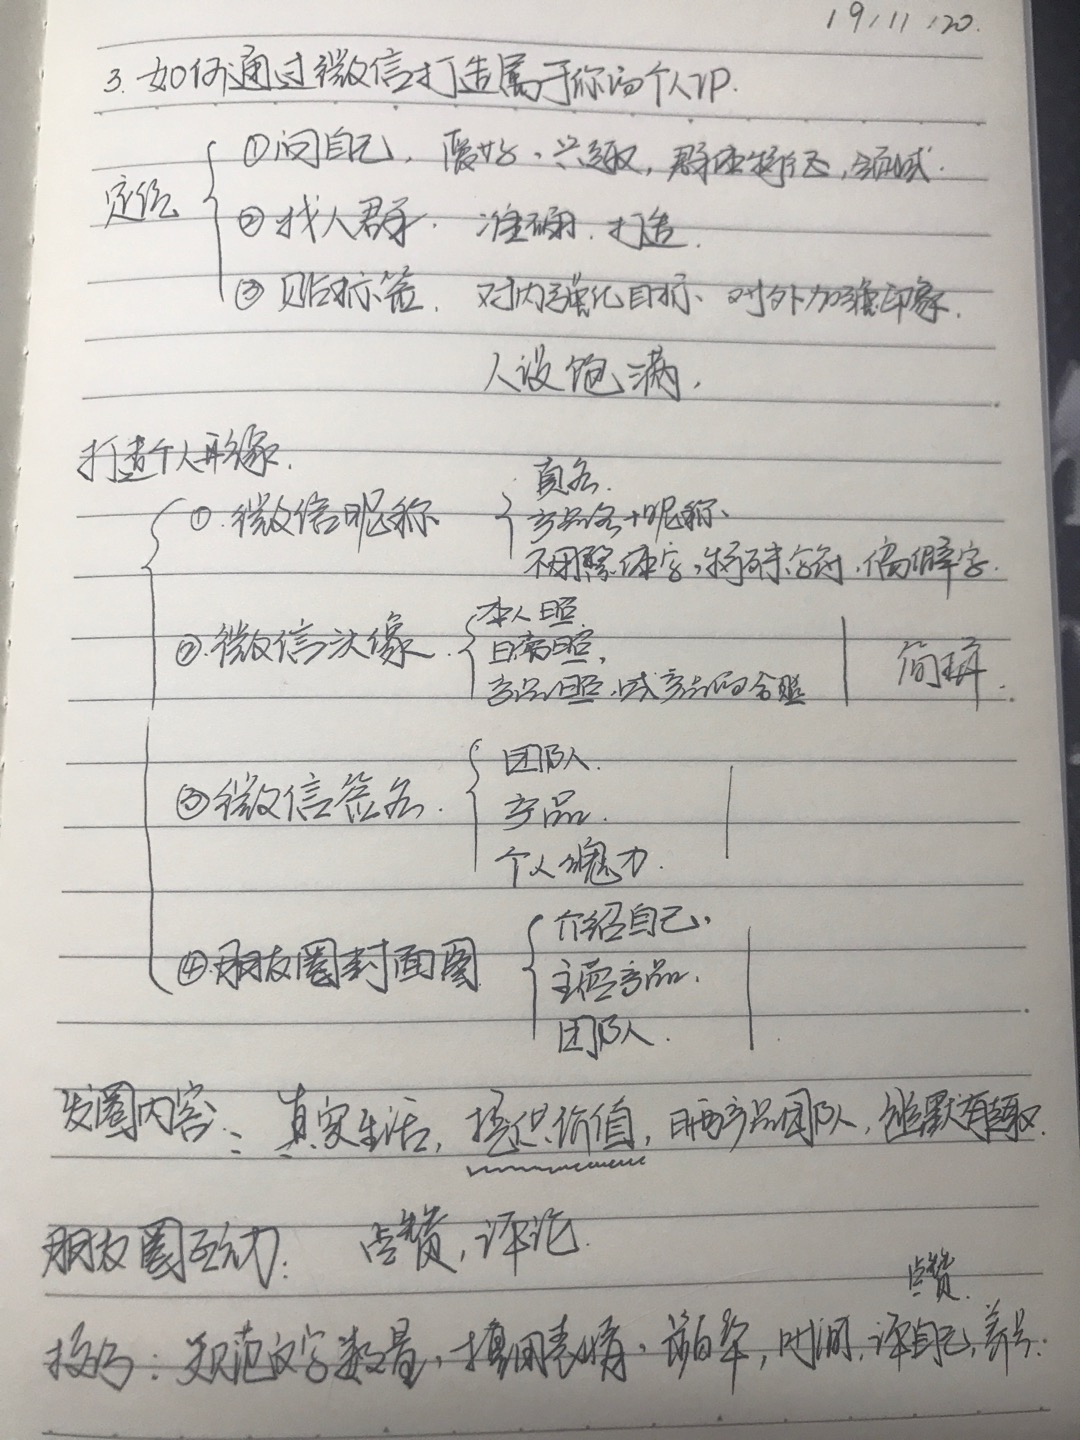 19/11/20.
3. 如何通过微信打造属于你的个人IP.
定位
①问自己, 爱好、兴趣, 群体特征, 领域.
②找人群. 准确, 打造.
③贴标签. 对内强化目标、对外加强印象.
人设饱满.
打造个人形象.
①.微信昵称
真名.
产品名+昵称、
不用繁体字,特殊字符、偏僻字.
②.微信头像.
本人照.
日常照,
产品照.或产品的合照
③微信签名.
团队.
产品.
个人魅力.
④.朋友圈封面图
介绍自己、
主营产品.
团队.
发圈内容: 真实生活, 提供价值, 日晒产品团队, 幽默有趣.
朋友圈互动: 点赞, 评论.
点赞.
技巧: 规范文字数量、搭用表情、 时间, 评自己, 养号.